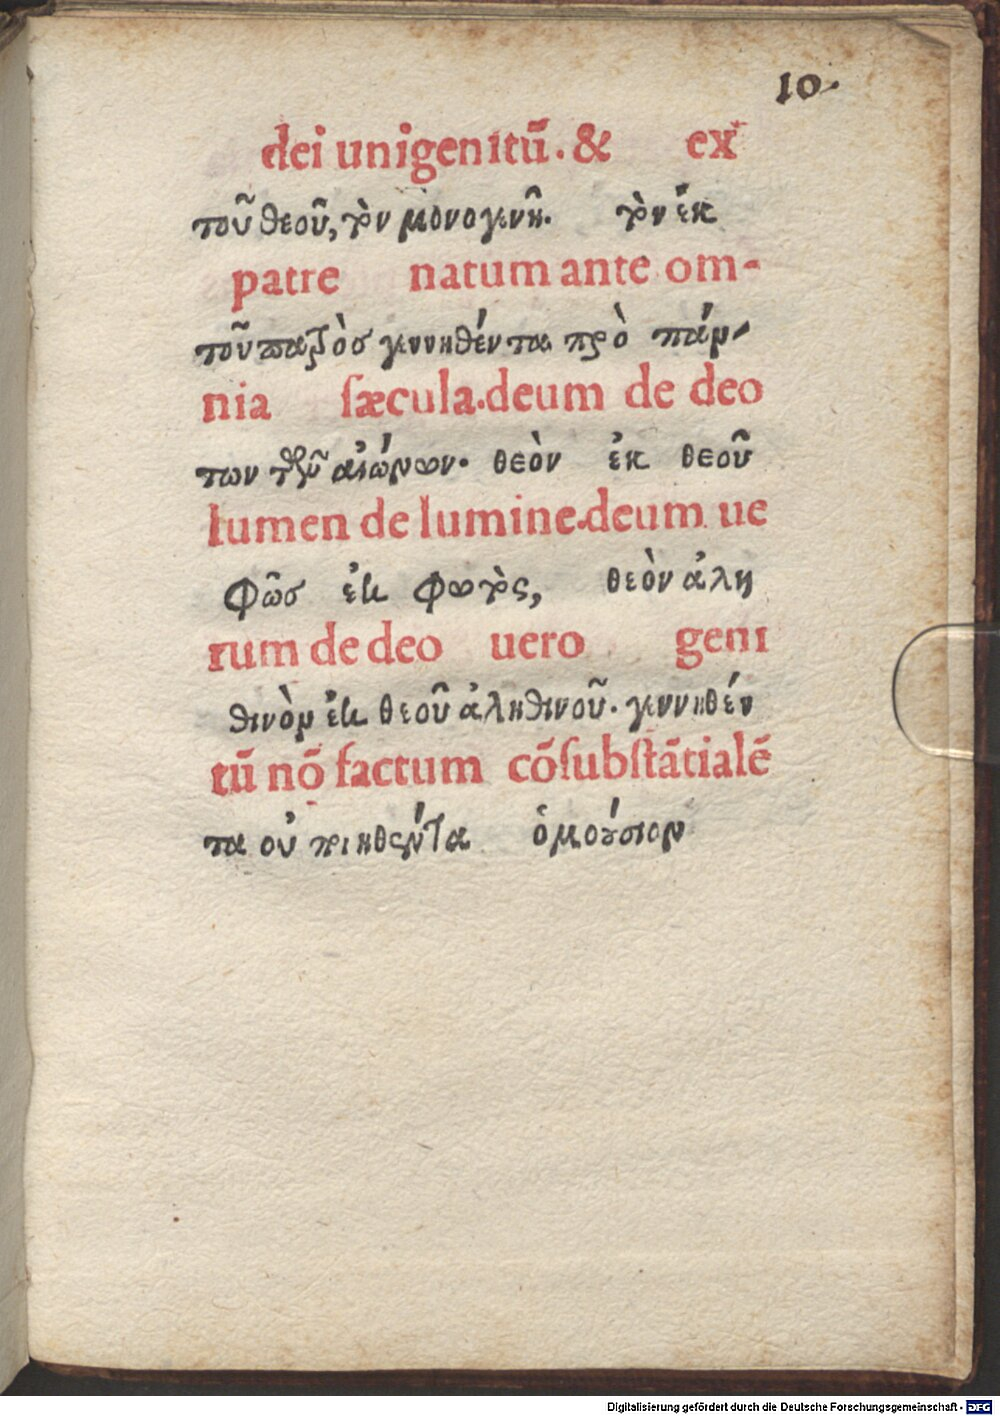 10.
dei unigenitū. & ex
τοῦ θεοῦ, τὸν μονογενῆ. τὸν ἐκ
patre natum ante om-
τοῦ πατρὸς γεννηθέντα πρὸ πάν-
nia sæcula. deum de deo
των τῶν αἰώνων. θεὸν ἐκ θεοῦ
lumen de lumine. deum ue
φῶς ἐκ φωτὸς, θεὸν ἀλη
rum de deo uero geni
θινὸν ἐκ θεοῦ ἀληθινοῦ. γεννηθέν
tū nō factum cōsubstātialē
τα οὐ ποιηθέντα ὁμοούσιον
Digitalisierung gefördert durch die Deutsche Forschungsgemeinschaft - DFG